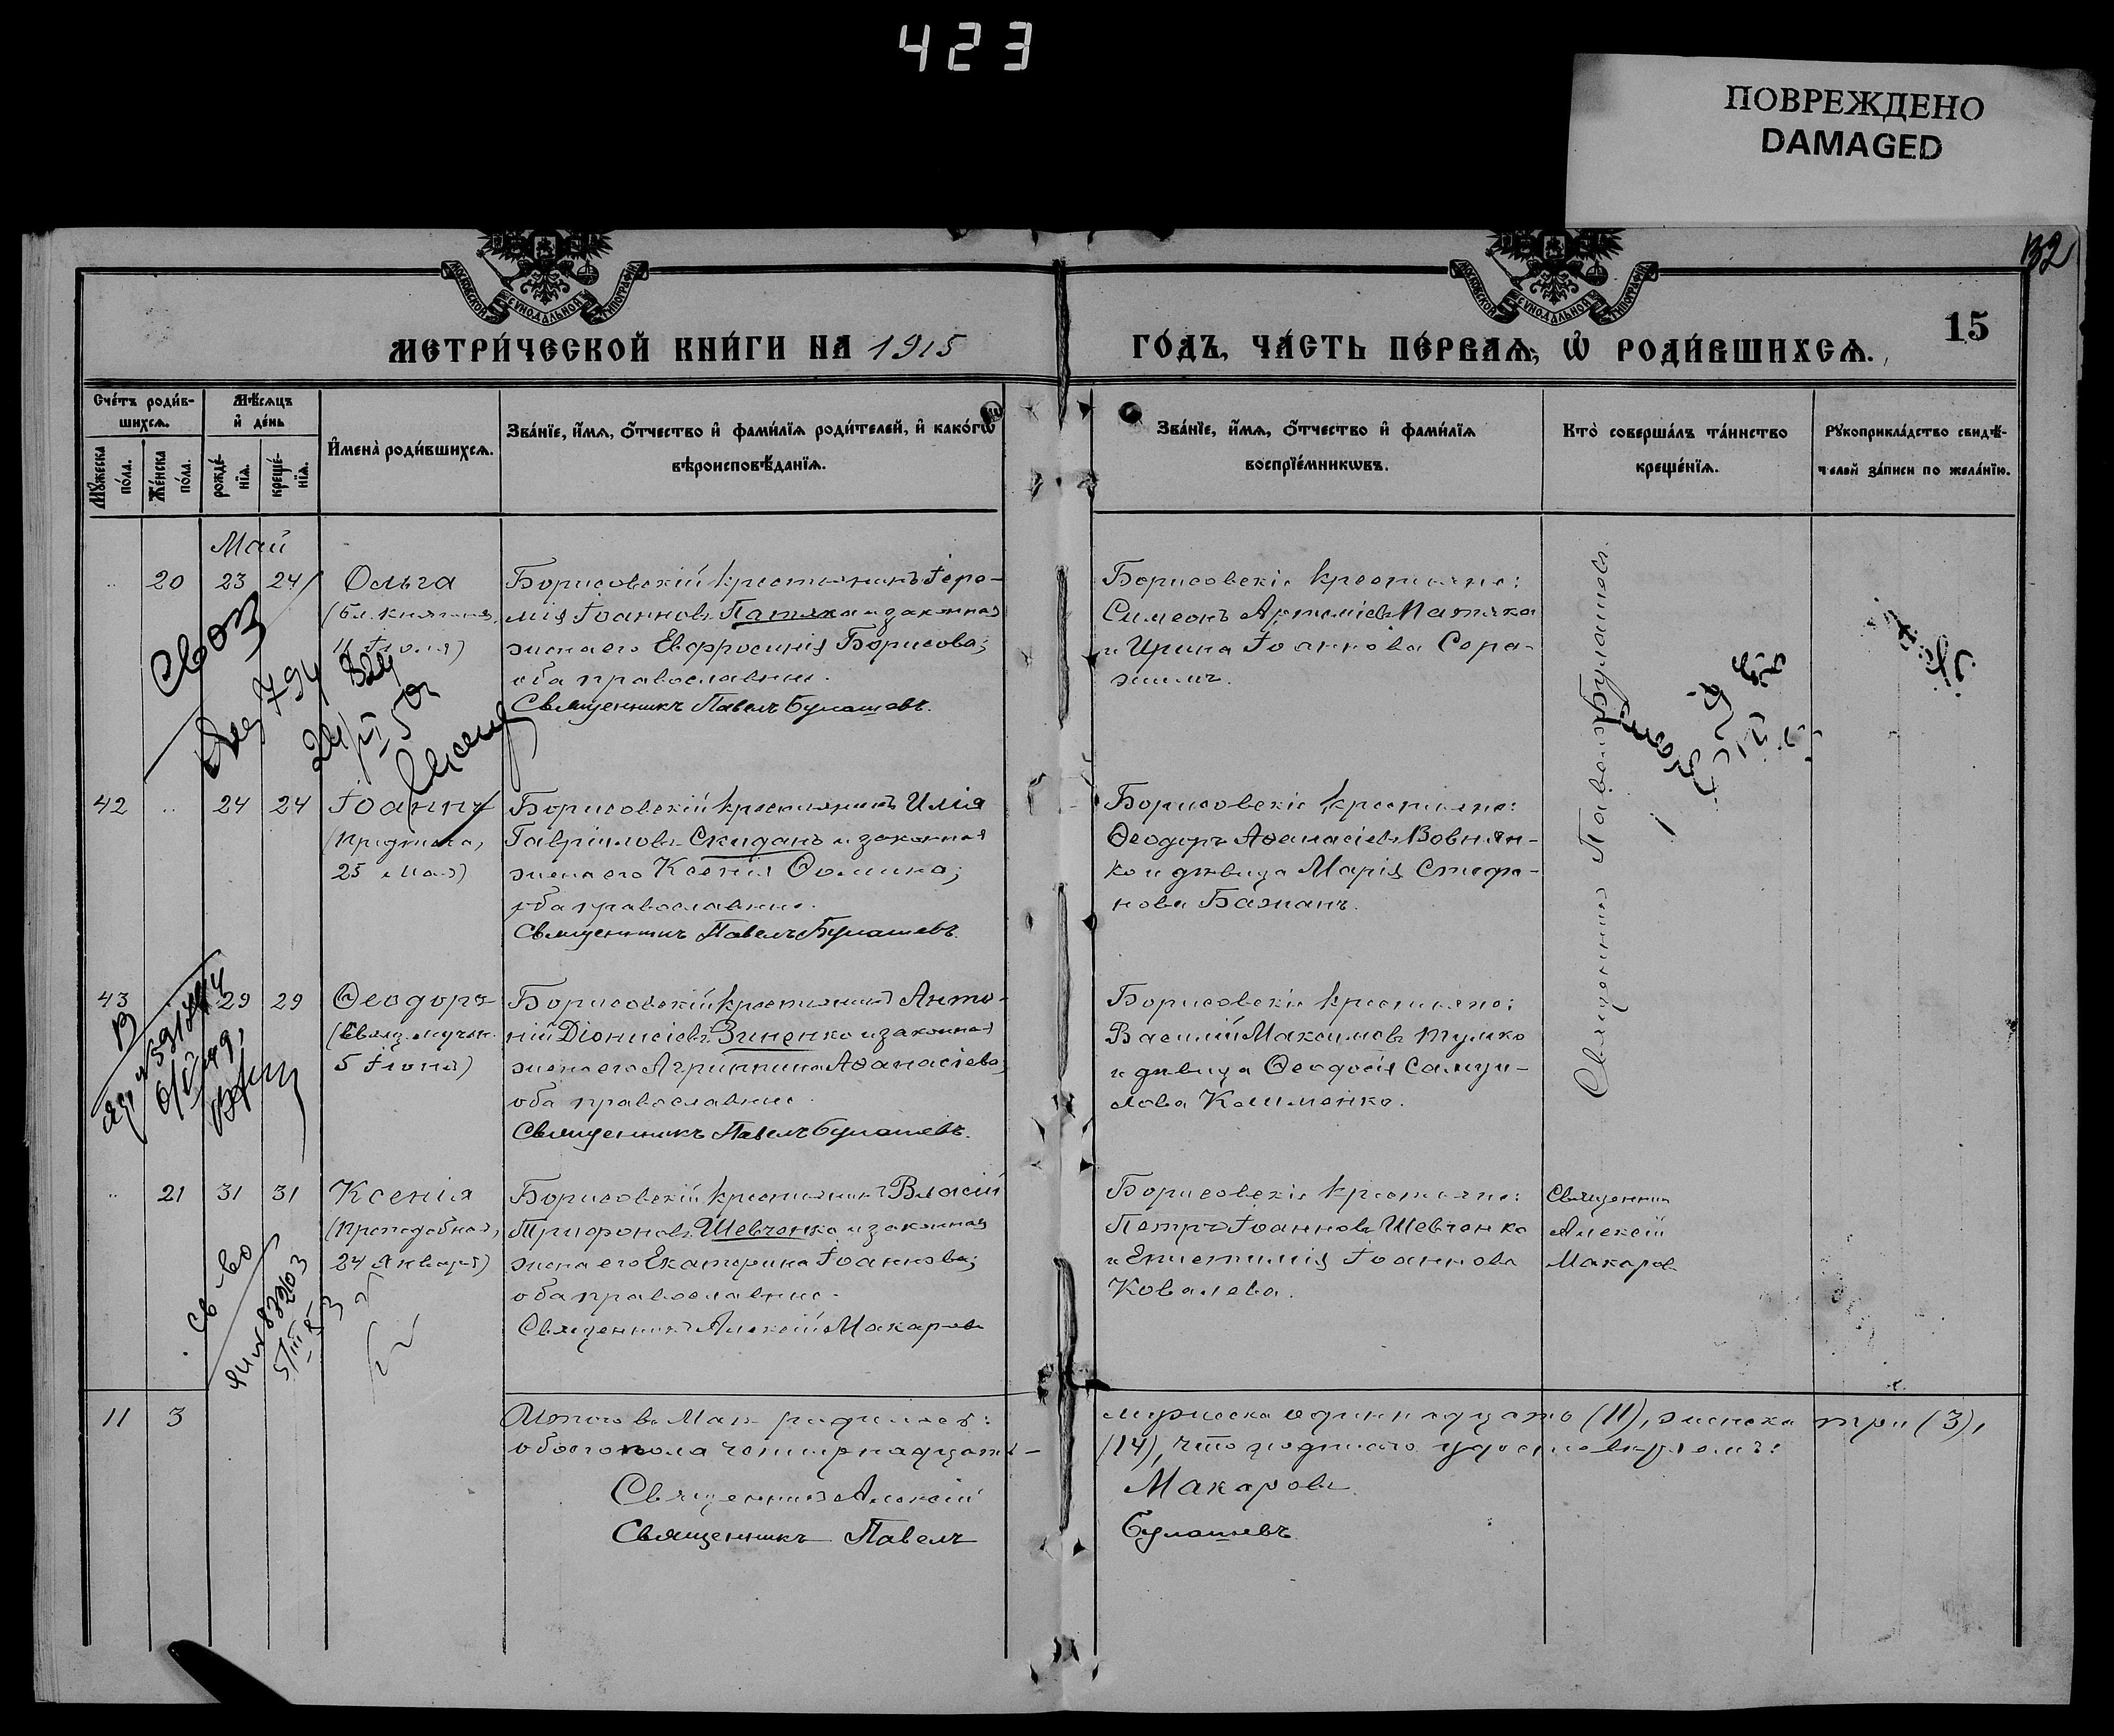 423
ПОВРЕЖДЕНО
DAMAGED
132
15
МОСКОВСКОЙ СѴНОДАЛЬНОЙ ТИПОГРАФІИ
МОСКОВСКОЙ СѴНОДАЛЬНОЙ ТИПОГРАФІИ
МЕТРИ́ЧЕСКОЙ КНИ́ГИ НА 1915
ГО́ДЪ, ЧА́СТЬ ПЕ́РВАѦ, Ѡ҆ РОДИ́ВШИХСѦ.
Сче́тъ роди́в-
шихсѧ.
Мꙋ́жеска по́ла.
Же́нска по́ла.
Мѣ́сѧцъ
и҆ де́нь
рожде́-
нїѧ.
креще́-
нїѧ.
И҆мена̀ роди́вшихсѧ.
Зва́нїе, и҆́мѧ, ѻ҆́тчество и҆ фами́лїѧ роди́телей, и҆ како́гѡ
вѣроисповѣ́данїѧ.
Зва́нїе, и҆́мѧ, ѻ҆́тчество и҆ фами́лїѧ
воспрїе́мникѡвъ.
Кто̀ соверша́лъ та́инство
креще́нїѧ.
Рꙋкоприкла́дство свидѣ́-
телей за́писи по жела́нїю.
Май
20 23 24 Ольга
(Бл. княгиня,
11 Іюля)
Борисовскій крестьянинъ Іере-
мія Іоанновъ Патяка и законная
жена его Евфросинія Борисова;
оба православные.
Священникъ Павелъ Булашевъ.
Борисовскіе крестьяне:
Симеонъ Артеміевъ Патяка
и Ирина Іоаннова Сора-
жимъ.
Священникъ Павелъ Булашевъ.
42 24 24 Іоаннъ
(Предтеча,
25 Мая)
Борисовскій крестьянинъ Илія
Гавріиловъ Скиданъ и законная
жена его Ксенія Ѳомина;
оба православные.
Священникъ Павелъ Булашевъ.
Борисовскіе крестьяне:
Ѳеодоръ Аѳанасіевъ Вовнян-
ко и дѣвица Марія Стефа-
нова Бажанъ.
43 29 29 Ѳеодоръ
(Свящ. мучен.
5 Іюня)
Борисовскій крестьянинъ Анто-
ній Діонисіевъ Зиненко и законная
жена его Агриппина Аѳанасіева;
оба православные.
Священникъ Павелъ Булашевъ.
Борисовскіе крестьяне:
Василій Максимовъ Тупико
и дѣвица Ѳеодосія Самуи-
лова Клименко.
21 31 31 Ксенія
(Преподобная,
24 Января)
Борисовскій крестьянинъ Власій
Трифоновъ Шевченко и законная
жена его Екатерина Іоаннова;
оба православные.
Священникъ Алексій Макаровъ
Борисовскіе крестьяне:
Петръ Іоанновъ Шевченко
и Епистимія Іоаннова
Ковалева.
Священникъ
Алексій
Макаровъ
11 3
Итого въ Маѣ родилось: мужеска одиннадцать (11), женска три (3),
обоего пола четырнадцать – (14), что подписью удостовѣряемъ:
Священникъ Алексій Макаровъ
Священникъ Павелъ Булашевъ.